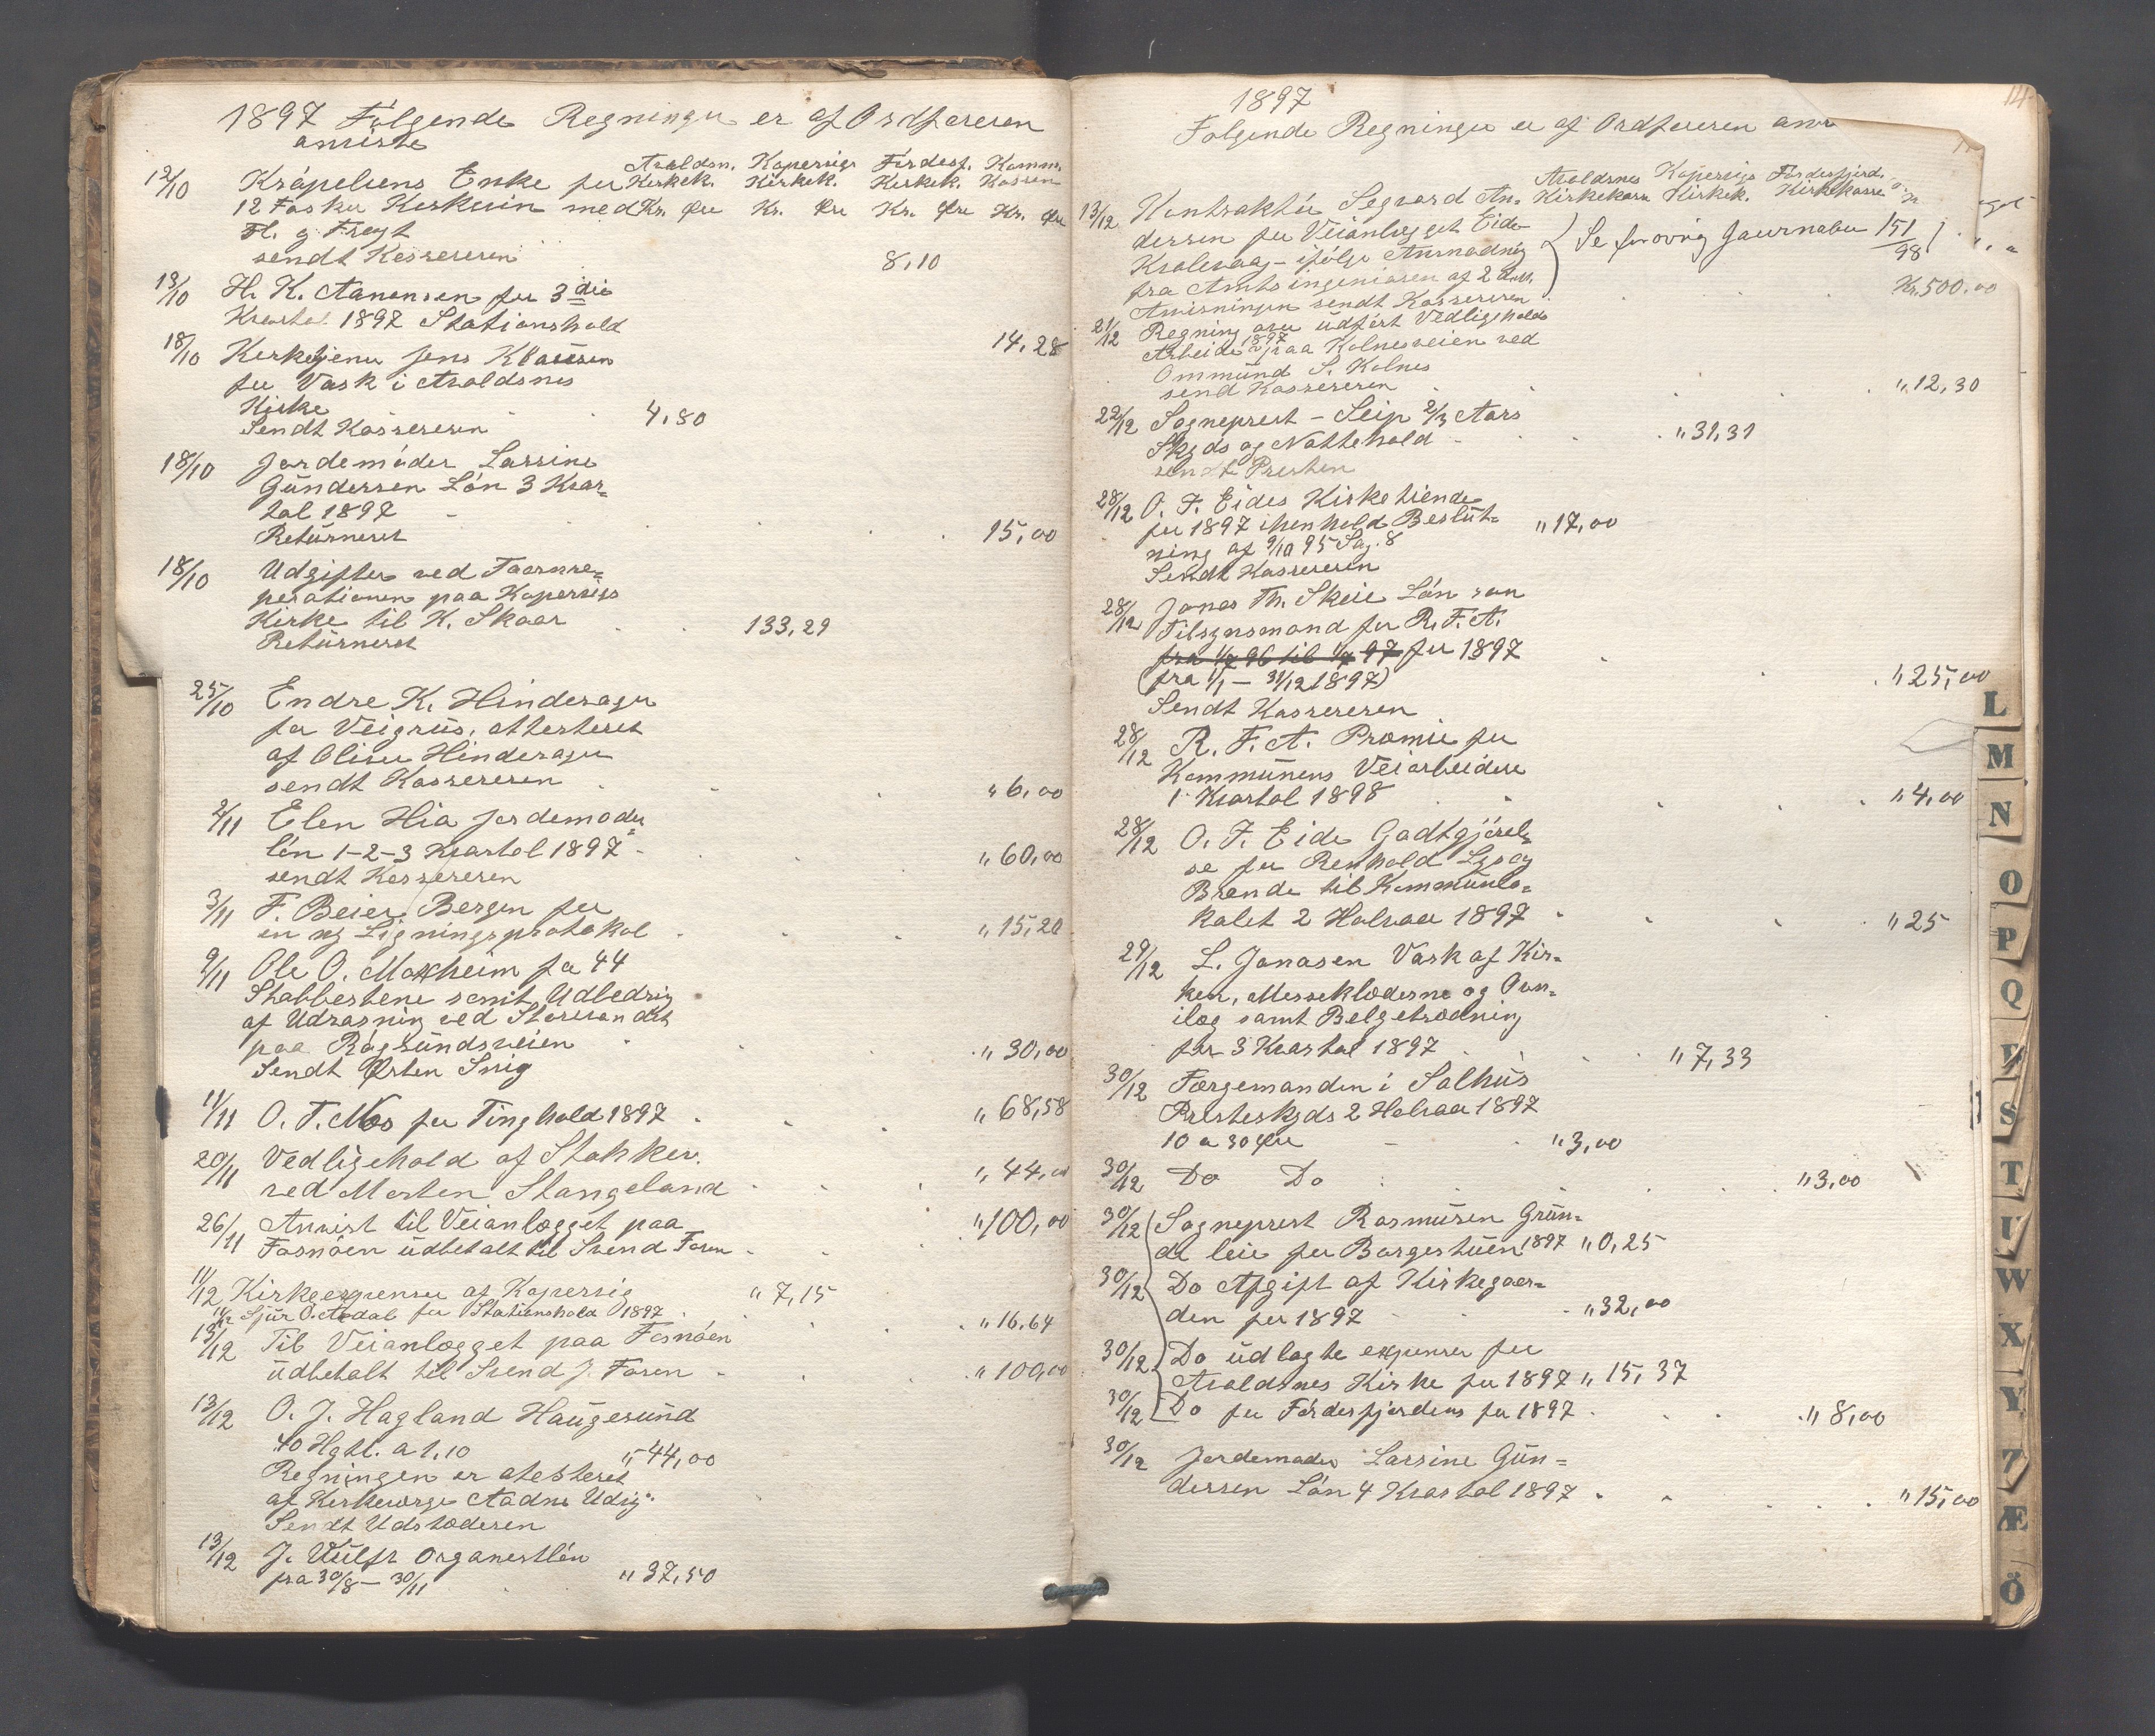 1897 Følgende Regninger er af Ordføreren
anviste
Avaldsn. Kopervigs Førdesf. Komm.
12/10 Kröpeliens Enke for Kirkek. Kirkek. Kirkek. Kassen
12 Flasker Kirkevin med Kr. Øre Kr. Øre Kr. Øre Kr. Øre
Fl. og Fragt
sendt Kassereren 8,10
13/10 H. K. Aanensen for 3die
Kvartal 1897 Stationshold 14,28
18/10 Kirketjener Jens Klausen
for Vask i Avaldsnes
Kirke
Sendt Kassereren 4,80
18/10 Jordemoder Lassine
Gundersen Løn 3 Kvar-
tal 1897
Returneret 15,00
18/10 Udgifter ved Taarnre-
perationen paa Kopervigs
Kirke til K. Skaar 133,29
Returneret
25/10 Endre K. Hinderager
for Veigrus, attesteret
af Oliver Hinderager
sendt Kassereren " 6,00
2/11 Elen Hia Jordemoder
løn 1-2-3 Kvartal 1897 " 60,00
sendt Kassereren
3/11 F. Beier Bergen for
en ny Ligningsprotokol " 15,20
9/11 Ole O. Moxheim for 44
Stabbestene samt Udbedring
af Udrasning ved Storevandet
paa Røgsundsveien " 30,00
Sendt Østen Snig
11/11 O. T. Moe for Tinghold 1897 " 68,58
20/11 Vedligehold af Stakker
ved Morten Stangeland " 44,00
26/11 Anvist til Veianlægget paa " 100,00
Fosnøen udbetalt til Svend Fosen
11/12 Kirkeexpenser af Kopervig " 7,15
11/12 Sjur O. Aadal for Stationshold 1897 " 16,64
13/12 Til Veianlægget paa Fosnøen
udbetalt til Svend J. Fosen " 100,00
13/12 O. J. Hagland Haugesund
40 Hgtl. a 1,10 " 44,00
Regningen er atesteret
af Kirkeværge Aadne Udvig
Sendt Udstæderen
13/12 J. Wulff Organestløn
fra 30/8 - 30/11 " 37,50
1897
Følgende Regninger er af Ordføreren anv
Avaldsnes Kopervigs Førdesfjord.
13/12 Kontraktør Segvard An- Kirkekasse Kirkek. Kirkekasse
dersen for Veianlægget Eide
Kvalevaag - ifølge Anmodning Se forøvrig Jaurnalen 151/98
fra Amtsingeniøren af 2 dss.
Anvisningen sendt Kassereren Kr. 500.00
21/12 Regning over udført Vedligeholds
Arbeide 1897 paa Kolnesveien ved
Ommund S. Kolnes
send Kassereren " 12,30
22/12 Sogneprest - Seip 2/3 Aars
Skyds og Nattehold " 31,31
sendt Presten
28/12 O. F. Eides Kirketiende
for 1897 i henhold Beslut- " 17,00
ning af 9/10 95 Sag. 8
Sendt Kassereren
28/12 Jonas Th. Skeie Løn som
Tilsynsmand for R. F. A.
fra 1/7 96 til 1/7 97 for 1897
(fra 1/1 - 31/12 1897) " 25,00
Sendt Kassereren
28/12 R. F. A. Præmie for
Kommunens Veiarbeidere
1 Kvartal 1898 " 4,00
28/12 O. F. Eide Godtgjørel-
se for Renhold Lys og
Brænde til Kommunelo-
kalet 2 Halvaar 1897 " 25
29/12 L. Jonasen Vask af Kir-
ken, Messeklæderne og Ovn-
ilæg samt Belgetrædning
for 3 Kvartal 1897 " 7,33
30/12 Færgemanden i Salhus
Presteskyds 2 Halvaar 1897
10 a 30 Øre " 3,00
30/12 Do Do " 3,00
30/12 Sogneprest Rasmusen Grun-
de leie for Borgestuen 1897 " 0,25
30/12 Do Afgift af Kirkegaar-
den for 1897 " 32,00
30/12 Do udlagte expenser for
Avaldsnes Kirke for 1897 " 15,37
30/12 Do for Førdesfjordens for 1897 " 8,00
30/12 Jordemoder Lassine Gun-
dersen Løn 4 Kvartal 1897 " 15,00
L
M
N
O
P
Q
S
T
U
W
X
Y
Z
Æ
Ö